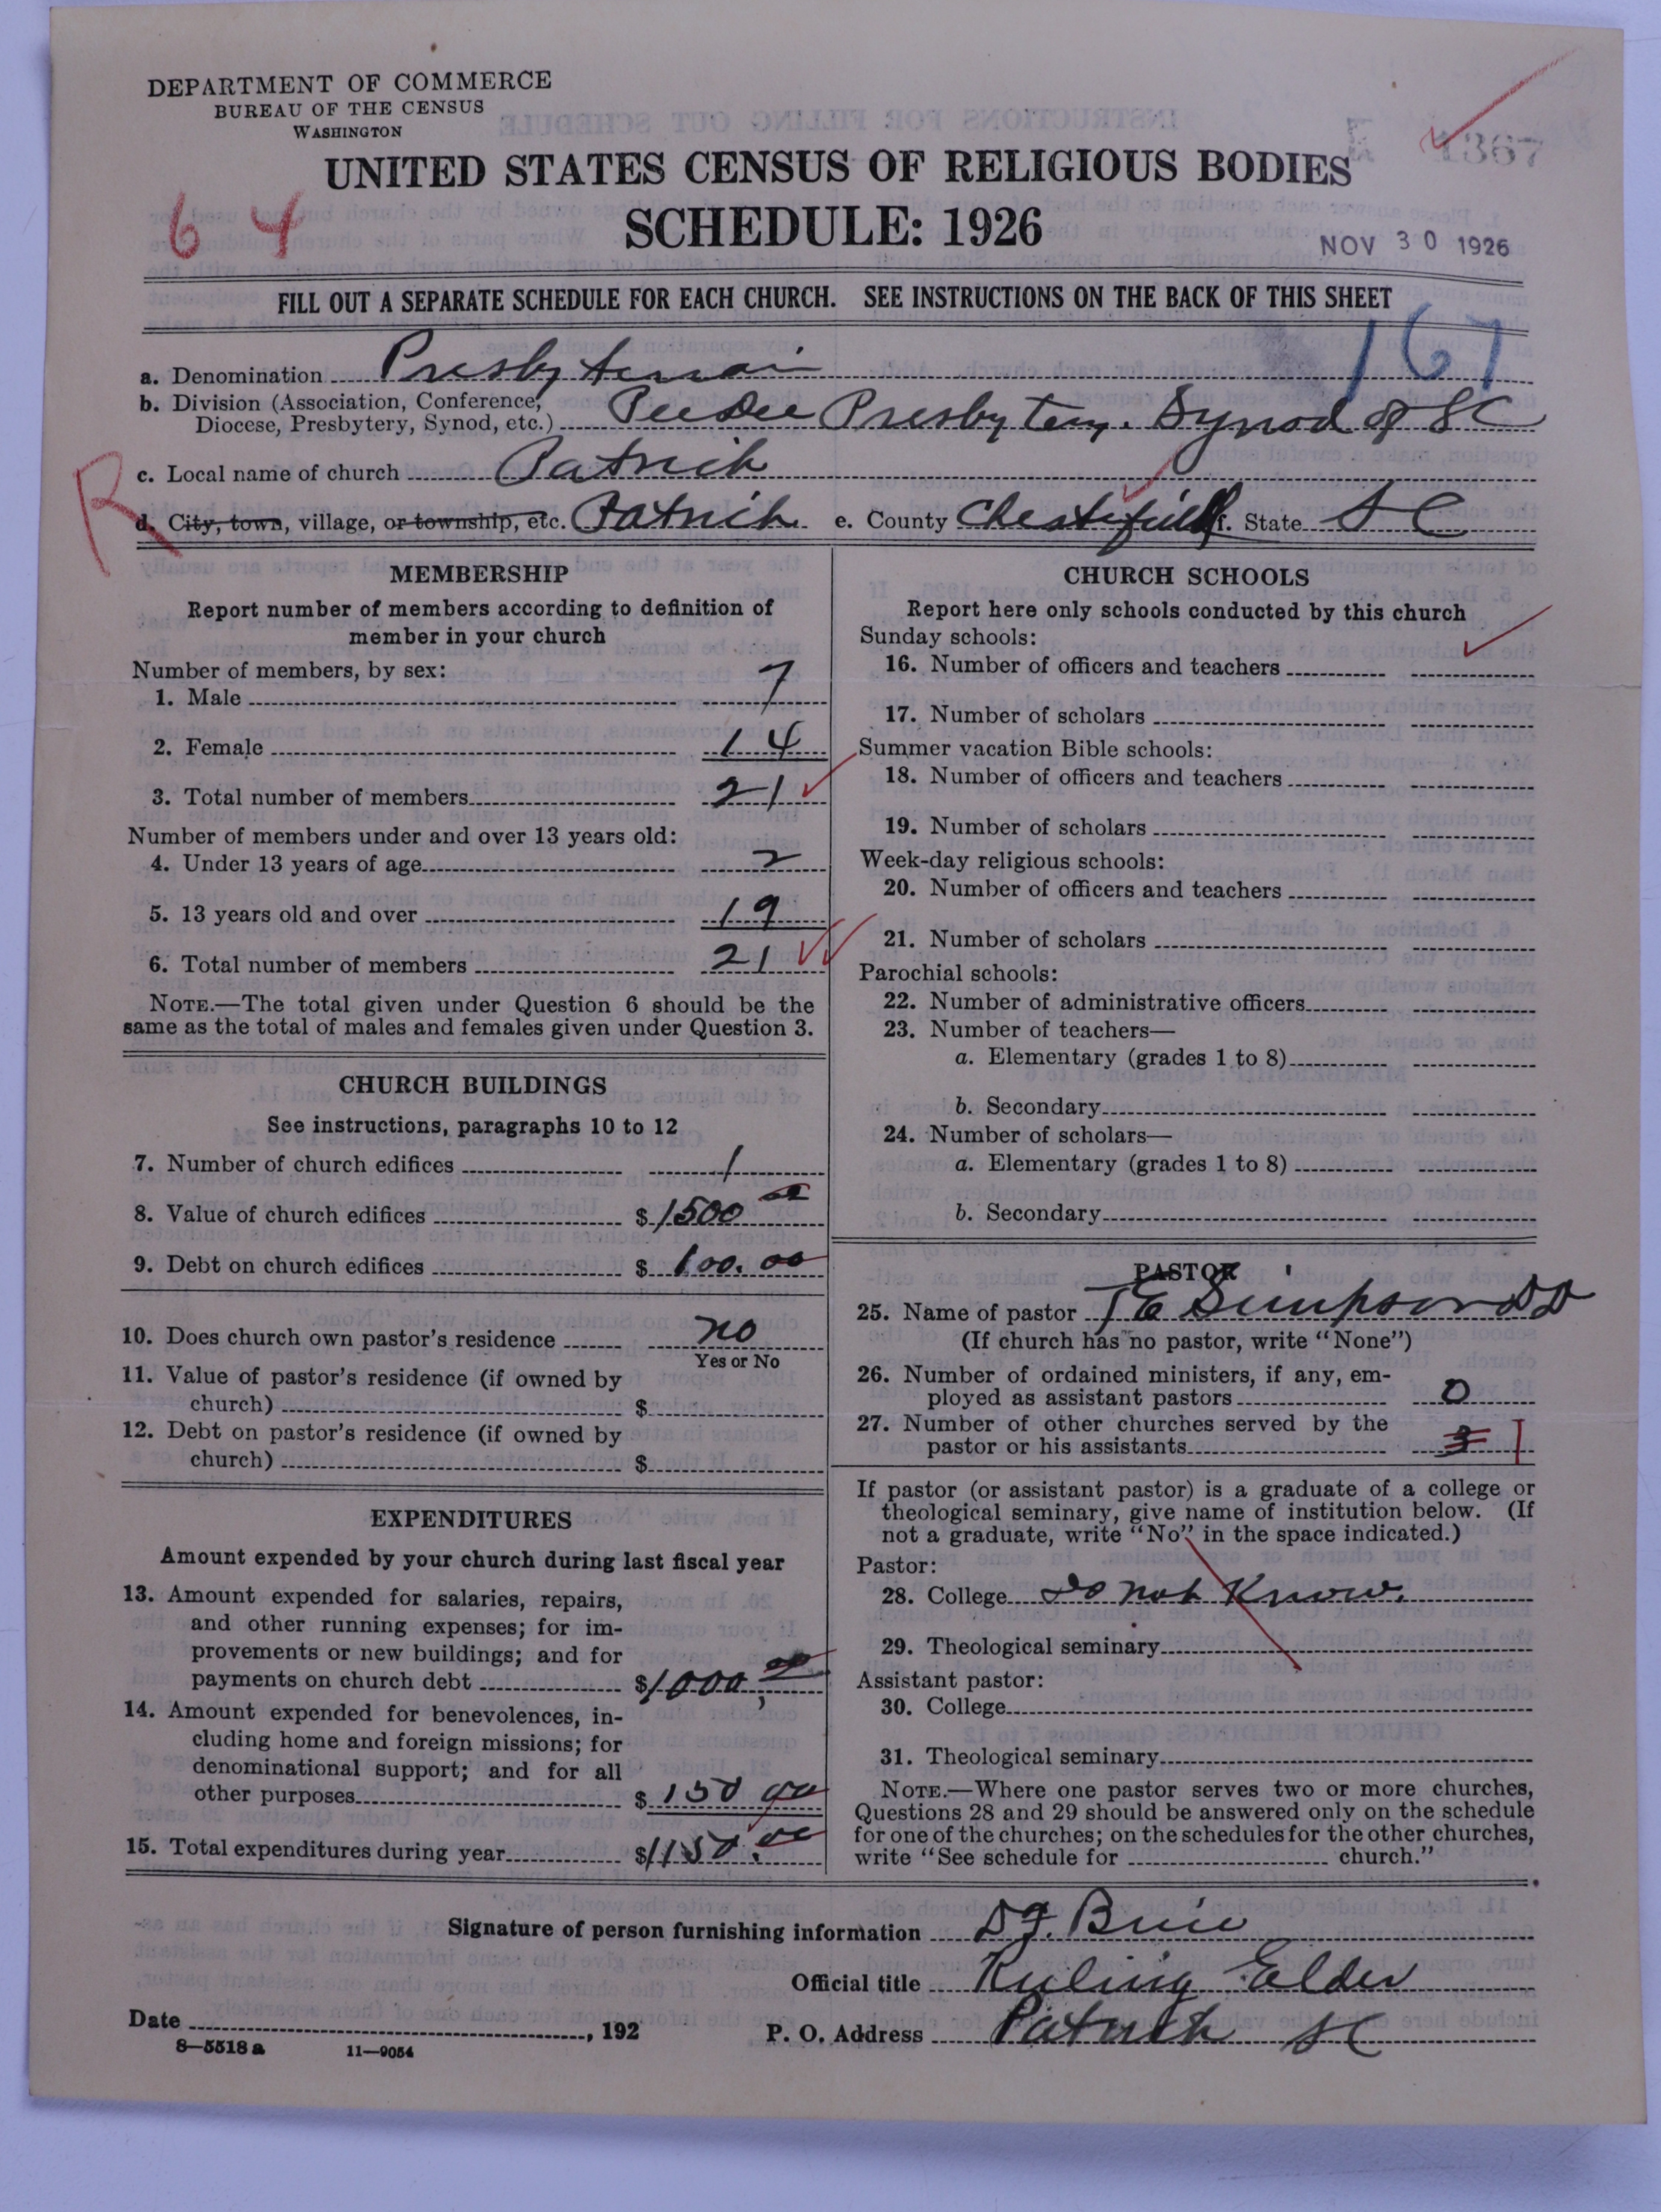 DEPARTMENT OF COMMERCE
BUREAU OF THE CENSUS
WASHINGTON
1367
UNITED STATES CENSUS OF RELIGIOUS BODIES
64
SCHEDULE: 1926
NOV 30 1926
FILL OUT A SEPARATE SCHEDULE FOR EACH CHURCH. SEE INSTRUCTIONS ON THE BACK OF THIS SHEET
167
a. Denomination Presbyterian
b. Division (Association, Conference, Diocese, Presbytery, Synod, etc.) PeeDee Presbytery. Synod of SC
R
c. Local name of church Patrick
d. City, town, village, or township, etc. Patrick e. County Chesterfield f. State SC
MEMBERSHIP
Report number of members according to definition of
member in your church
Number of members, by sex:
1. Male 7
2. Female 14
3. Total number of members 21
Number of members under and over 13 years old:
4. Under 13 years of age 2
5. 13 years old and over 19
6. Total number of members 21
NOTE.—The total given under Question 6 should be the
same as the total of males and females given under Question 3.
CHURCH BUILDINGS
See instructions, paragraphs 10 to 12
7. Number of church edifices 1
8. Value of church edifices $1500 00
9. Debt on church edifices $100.00
10. Does church own pastor's residence no
Yes or No
11. Value of pastor's residence (if owned by
church) $
12. Debt on pastor's residence (if owned by
church) $
EXPENDITURES
Amount expended by your church during last fiscal year
13. Amount expended for salaries, repairs,
and other running expenses; for im-
provements or new buildings; and for
payments on church debt $1000,00
14. Amount expended for benevolences, in-
cluding home and foreign missions; for
denominational support; and for all
other purposes $150 00
15. Total expenditures during year $1150.00
CHURCH SCHOOLS
Report here only schools conducted by this church
Sunday schools:
16. Number of officers and teachers
17. Number of scholars
Summer vacation Bible schools:
18. Number of officers and teachers
19. Number of scholars
Week-day religious schools:
20. Number of officers and teachers
21. Number of scholars
Parochial schools:
22. Number of administrative officers
23. Number of teachers—
a. Elementary (grades 1 to 8)
b. Secondary
24. Number of scholars—
a. Elementary (grades 1 to 8)
b. Secondary
PASTOR
25. Name of pastor T E Simpson DD
(If church has no pastor, write "None")
26. Number of ordained ministers, if any, em-
ployed as assistant pastors 0
27. Number of other churches served by the
pastor or his assistants 3 1
If pastor (or assistant pastor) is a graduate of a college or
theological seminary, give name of institution below. (If
not a graduate, write "No" in the space indicated.)
Pastor:
28. College Do not Know.
29. Theological seminary
Assistant pastor:
30. College
31. Theological seminary
NOTE.—Where one pastor serves two or more churches,
Questions 28 and 29 should be answered only on the schedule
for one of the churches; on the schedules for the other churches,
write "See schedule for church."
Signature of person furnishing information D F. Buie
Official title Ruling Elder
Date , 192
P. O. Address Patrick SC
8—5518 a 11—9054